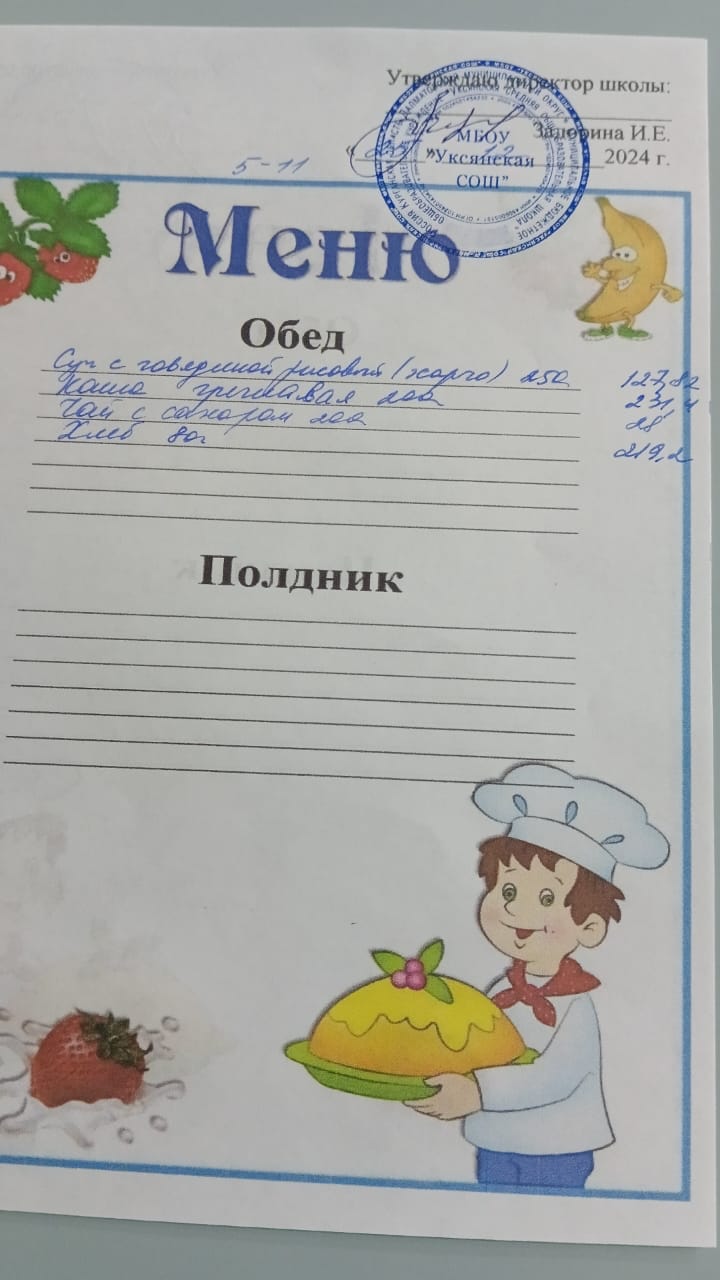 Утверждаю директор школы:
Задорина И.Е.
" " 12 2024 г.
МБОУ
"Уксянская
СОШ"
5-11
Меню
Обед
Суп с говядиной рисовый (харчо) 250 127,82
Каша гречневая 200 231,4
Чай с сахаром 200 28
Хлеб 80г 219,2
Полдник